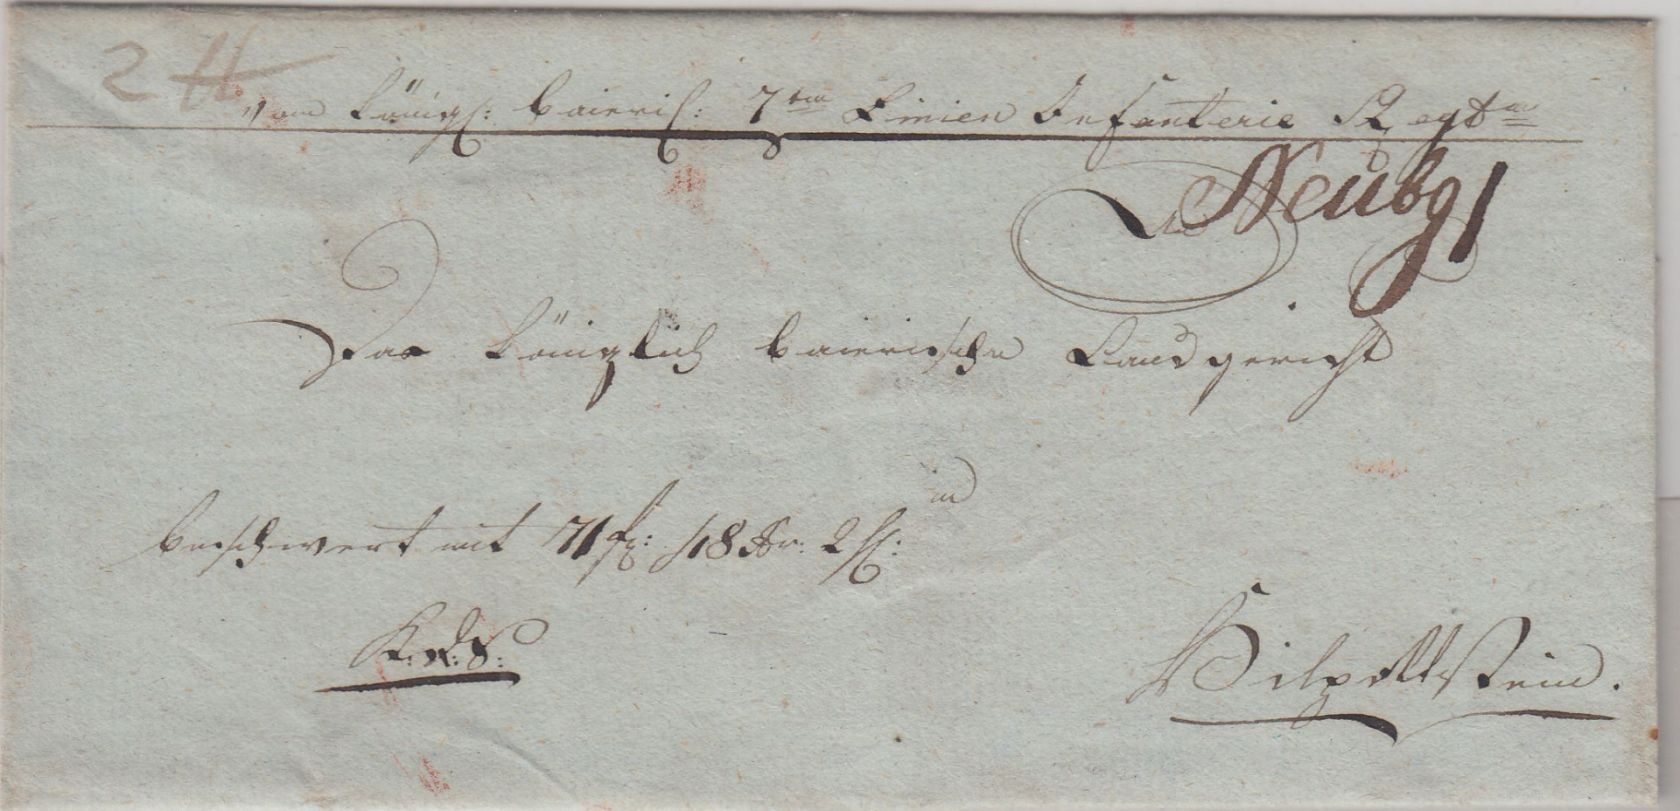 2 ℔
vom königl: baierisl: 7ten Linien Infanterie Regte
Neubg
An
Das königlich baierische Landgericht
beschwert mit 71 f: 48 kr: 2 hl:
in
K: D: S:
Hilpoltstein.